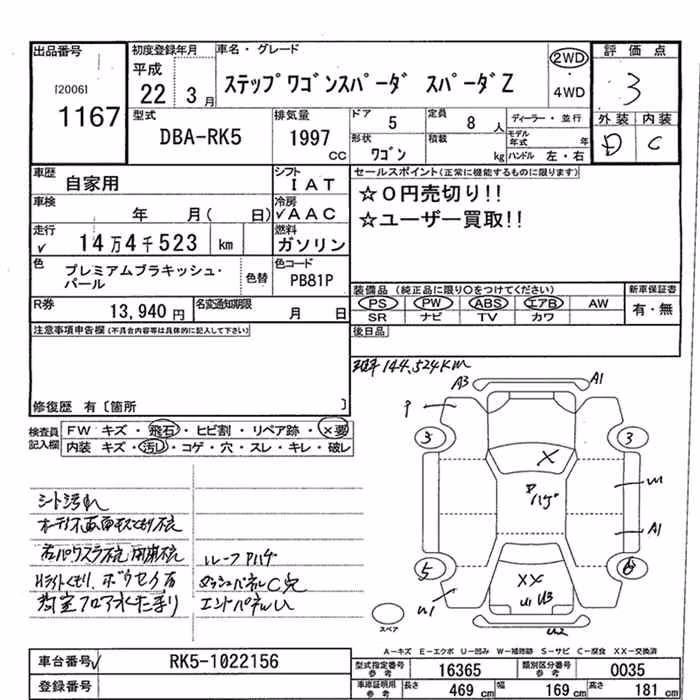 出品番号
[2006]
1167
初度登録年月
平成
22年 3月
車名・グレード
ステップワゴンスパーダ スパーダZ
2WD
・
4WD
評価点
3
外装 内装
D C
型式
DBA-RK5
排気量
1997 cc
ドア 5
定員 8人
形状 ワゴン
積載 kg
ディーラー・並行
モデル年式 年
ハンドル 左・右
車歴 自家用
シフト IAT
車検 年 月( 日)
冷房 ✓AAC
走行 ✓ 14万4千523 km
燃料 ガソリン
色 プレミアムブラキッシュ・パール
色替
色コード PB81P
R券 13,940円
名変通知期限 月 日
セールスポイント(正常に機能するものに限ります)
☆0円売切り!!
☆ユーザー買取!!
装備品(純正品に限り○をつけてください)
PS PW ABS エアB AW
SR ナビ TV カワ
新車保証書
有・無
後日品
注意事項申告欄(不具合内容等は具体的に記入して下さい)
修復歴 有〔箇所 〕
検査員記入欄
FW キズ・飛石・ヒビ割・リペア跡・×要
内装 キズ・汚レ・コゲ・穴・スレ・キレ・破レ
144,524Km
A3 A1
P
3 3
X
Pハゲ
U1
A1
5 6
XX
U1 U3
U1
U2
スペア
シート汚れ
ルーフPハゲ
ダッシュパネルC穴
エンドパネルU
A－キズ E－エクボ U－凹み W－補修跡 S－サビ C－腐食 XX－交換済
車台番号 ✓ RK5-1022156
登録番号
型式指定番号参考 16365
類別区分番号参考 0035
車庫証明用参考 長さ 469 cm 幅 169 cm 高さ 181 cm